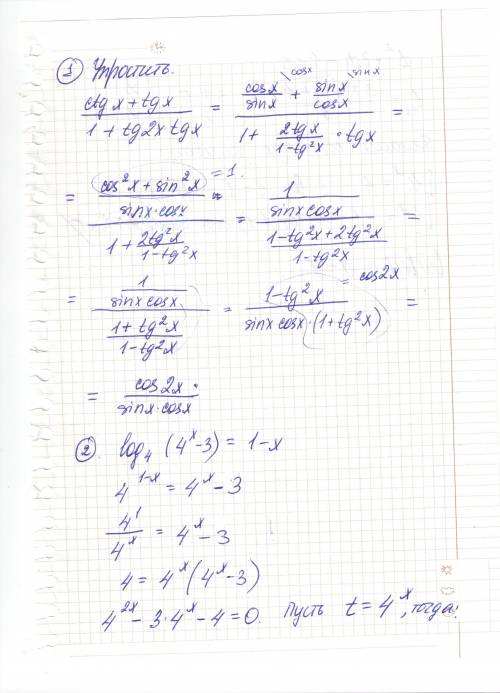 ① Упростить.
(ctg x + tg x) / (1 + tg2x tgx) = (cosx/sinx \cosx + sinx/cosx \sinx) / (1 + 2tgx/(1-tg²x) · tgx) =
= ((cos²x + sin²x)/(sinx·cosx)) / (1 + 2tg²x/(1-tg²x)) = 1. = (1/(sinx cosx)) / ((1-tg²x+2tg²x)/(1-tg²x)) =
= (1/(sinx cosx)) / ((1+tg²x)/(1-tg²x)) = (1-tg²x)/(sinx cosx·(1+tg²x)) = cos2x =
= cos2x/(sinx·cosx).
② log₄(4ˣ-3) = 1-x
4¹⁻ˣ = 4ˣ-3
4¹/4ˣ = 4ˣ-3
4 = 4ˣ(4ˣ-3)
4²ˣ - 3·4ˣ - 4 = 0. Пусть t = 4ˣ, тогда: